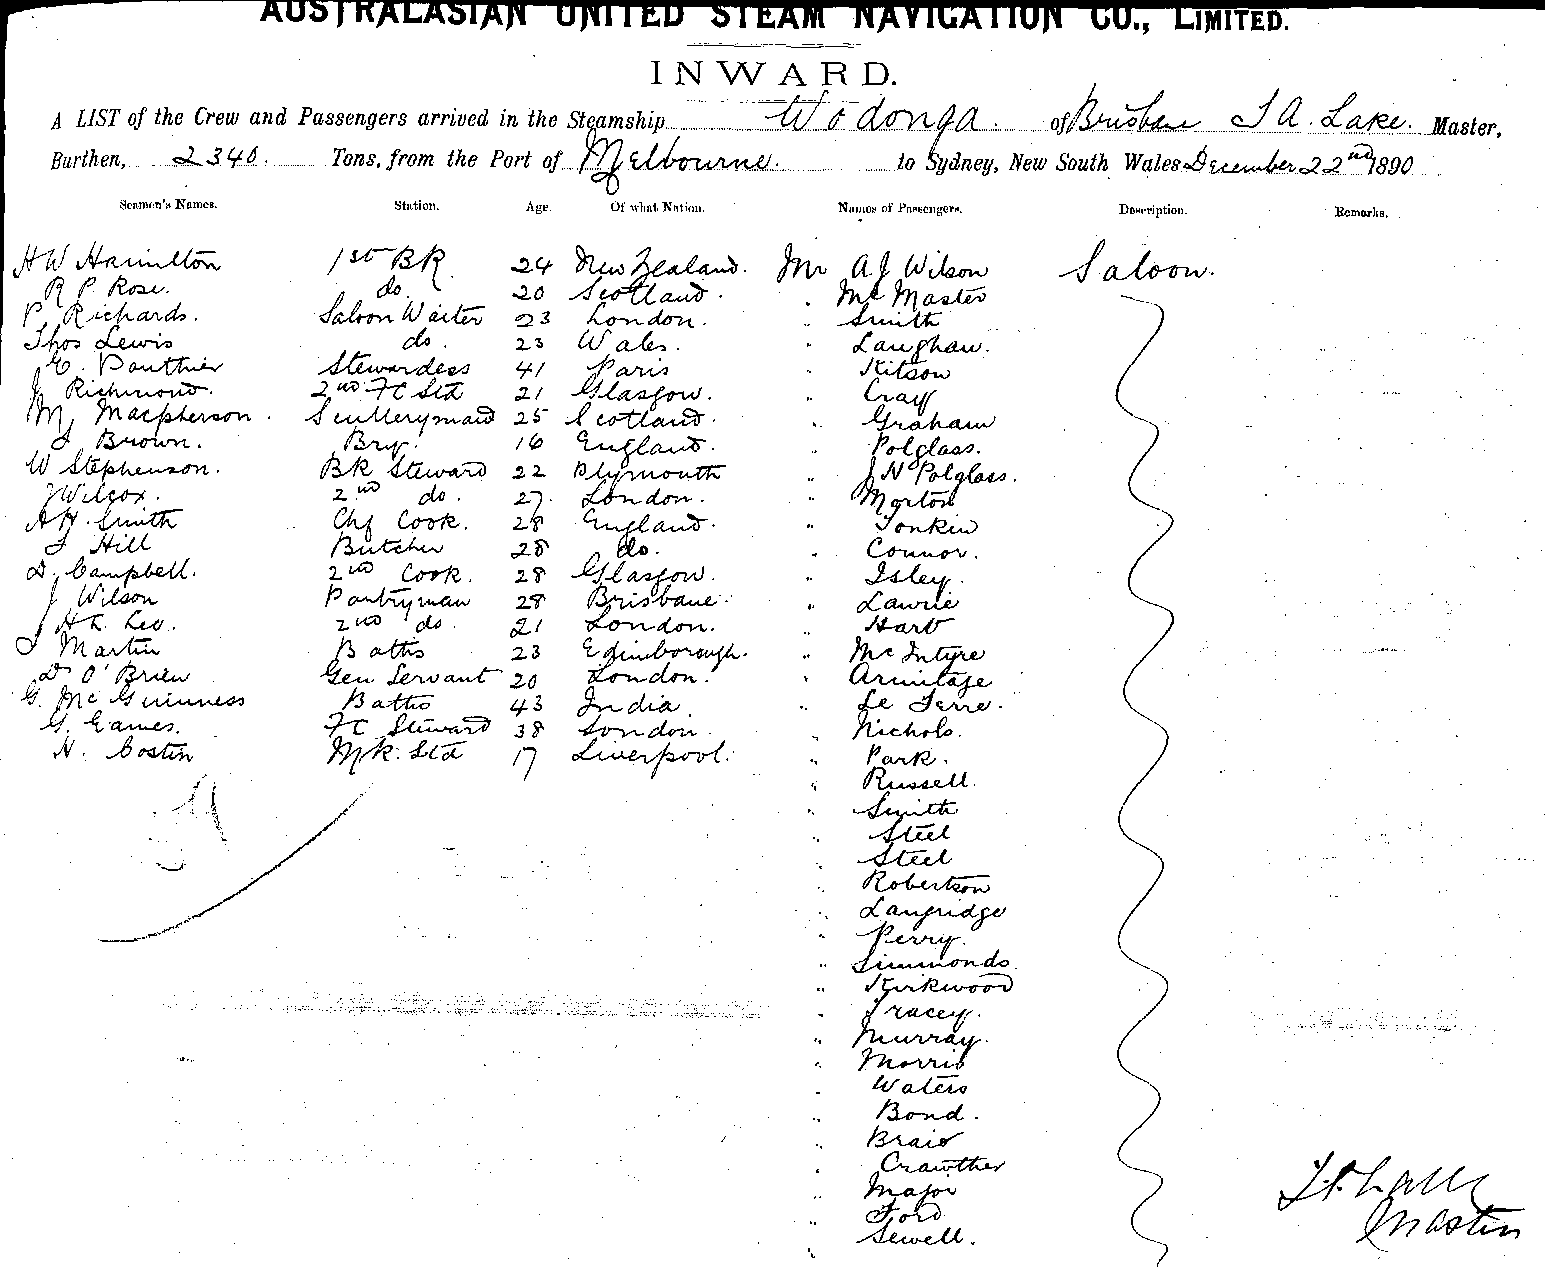 AUSTRALASIAN UNITED STEAM NAVIGATION CO., LIMITED.
INWARD.
A LIST of the Crew and Passengers arrived in the Steamship Wodonga. of Brisbane J A. Lake. Master,
Burthen, 2340. Tons, from the Port of Melbourne. to Sydney, New South Wales December 22nd 1890
Seamen's Names. Station. Age. Of what Nation. Names of Passengers. Description. Remarks.
H W Hamilton 1st BR 24 New Zealand. Mr A J Wilson Saloon.
R P. Rose. do. 20 Scotland. " Mc Master
P. Richards. Saloon Waiter 23 London. " Smith
Thos Lewis do. 23 Wales. " Langhan.
E. Pauthier Stewardess 41 Paris " Kitson
J Richmond. 2nd FC Std 21 Glasgow. " Cray
M, Macpherson. Scullerymaid 25 Scotland. " Graham
J Brown. Bry. 16 England. " Polglass.
W Stephenson. BR Steward 22 Plymouth " J N Polglass.
J Wilcox. 2nd do. 27. London. " Morton
A H. Smith Chf Cook. 28 England. " Tonkin
J Hill Butcher 28 do. " Connor.
D. Campbell. 2nd Cook. 28 Glasgow. " Isley.
J Wilson Pantryman 28 Brisbane. " Lawrie
H L. Leo. 2nd do. 21 London. " Hart
J Martin Baths 23 Edinborough. " McIntyre
D O'Brien Gen Servant 20 London. " Armitage
G. McGuinness Baths 43 India. " Le Ferre.
G. Eames. FC Steward 38 London " Nichols.
H. Costin Mk. Std 17 Liverpool. " Park.
" Russell.
" Smith
" Steel
" Steel
" Robertson
" Langridge
" Perry.
" Simmonds
" Kirkwood
" Tracey.
" Murray.
" Morris
" Waters
" Bond.
" Braid
" Crawther
" Major
" Ford
" Sewell.
Master